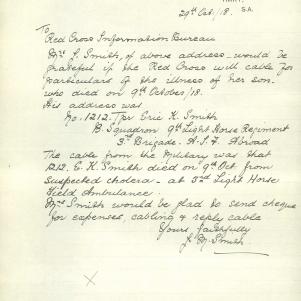 S.A.
29th Oct/18.
To
Red Cross Information Bureau
Mrs L. Smith, of above address - would be
grateful if the Red Cross will cable for
particulars of the illness of her son.
who died on 9th October/18.
His address was
No. 1212. Tpr Eric K. Smith
B. Squadron 9th Light Horse Regiment
3rd Brigade. A.I.F. Abroad
The cable from the Military was that
1212. E. K. Smith died on 9th Oct from
suspected cholera - at 3rd Light Horse
Field Ambulance.
Mrs Smith would be glad to send cheque
for expenses, cabling & reply cable
Yours faithfully
Smith